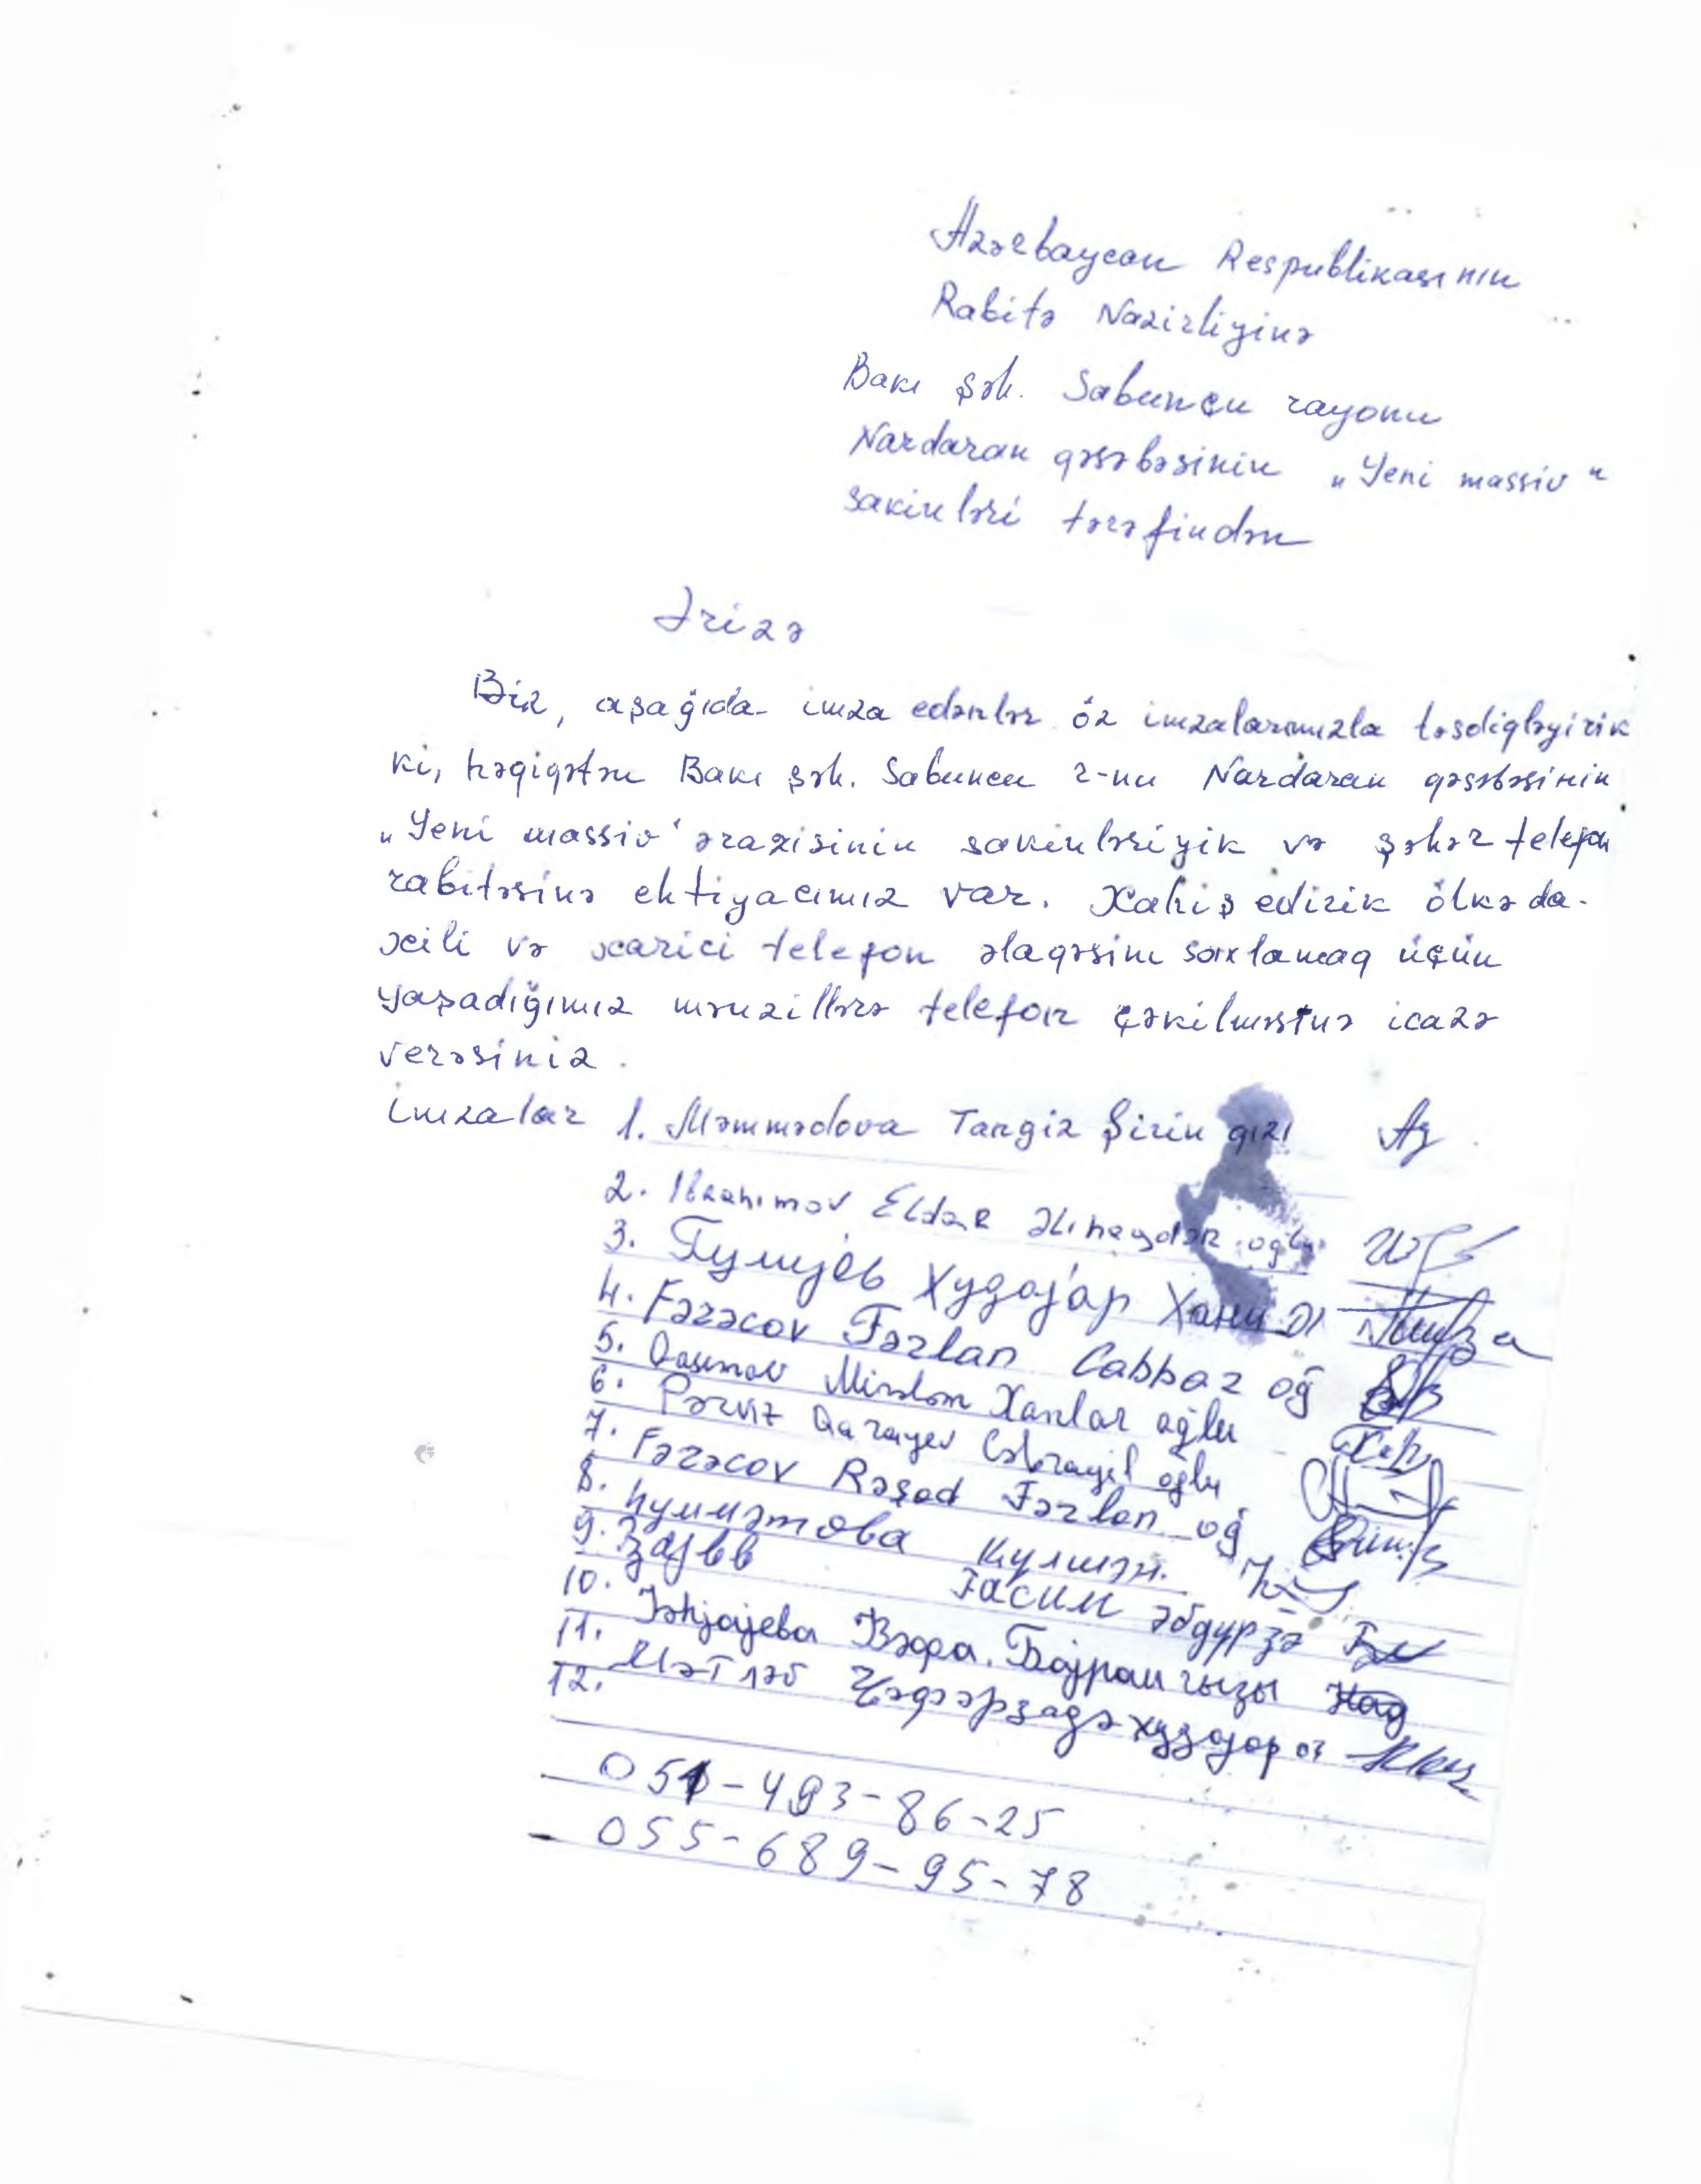 Azərbaycan Respublikasının
Rabitə Nazirliyinə
Bakı şəh. Sabunçu rayonu
Nardaran qəsəbəsinin „Yeni massiv“
sakinləri tərəfindən
Ərizə
Biz, aşağıda imza edənlər öz imzalarımızla təsdiqləyirik
ki, həqiqətən Bakı şəh. Sabuncu r-nu Nardaran qəsəbəsinin
„Yeni massiv“ ərazisinin sakinləriyik və şəhər telefon
rabitəsinə ehtiyacımız var. Xahiş edirik ölkə da-
xili və xarici telefon əlaqəsini saxlamaq üçün
yaşadığımız mənzillərə telefon çəkilməsinə icazə
verəsiniz.
imzalar 1. Məmmədova Tərgiz Şirin qızı
2. Ibrahimov Eldar Əliheydər oğlu
3. Гулијев Худојар Хани
4. Fərəcov Fərlan Cabbar oğ
5. Qasımov Mirələm Xanlar oğlu
6. Pərviz Qarayev Cəbrayıl oğlu
7. Fərəcov Rəşad Fərlan oğ
8. Һүммәтова Күлшән.
9. Гасим Әбдүррзә
10. Јәһјајева Вәфа. Бајрам гызы
11. Мәтләб Ҹәфәрзадә худојар оғ
12.
051-493-86-25
055-689-95-78